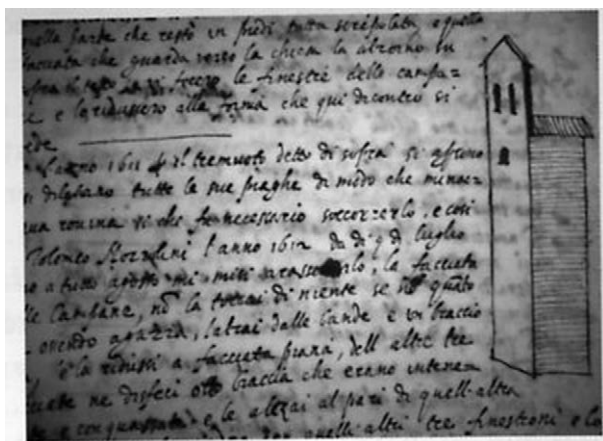 quella parte che restò in piedi tutta screpolata e quella
facciata che guarda verso la chiesa la alzorno su
sopra il tetto vi fecero le finestre dello campa=
e e la ridussero alla forma che qui dicontro si
ede
l'anno 1611 il tremuoto detto di sopra si aprirno
tutte le sue piaghe di modo che minac=
ua rouina si che fu necessario soccorrerlo, e così
l'anno 1612 da di 9 di luglio
o a tutto agosto mi misi a rassettarlo, la facciata
lle Campane, nõ la toccai di niente se nõ quãto
dalle bande e un braccio
e la ridussi a facciata piana, dell altre tre
cciate ne disfeci otto braccia che erano intene=
te e conquassate e le alzai al pari di quell altra
quelli altri tre finestroni e lo